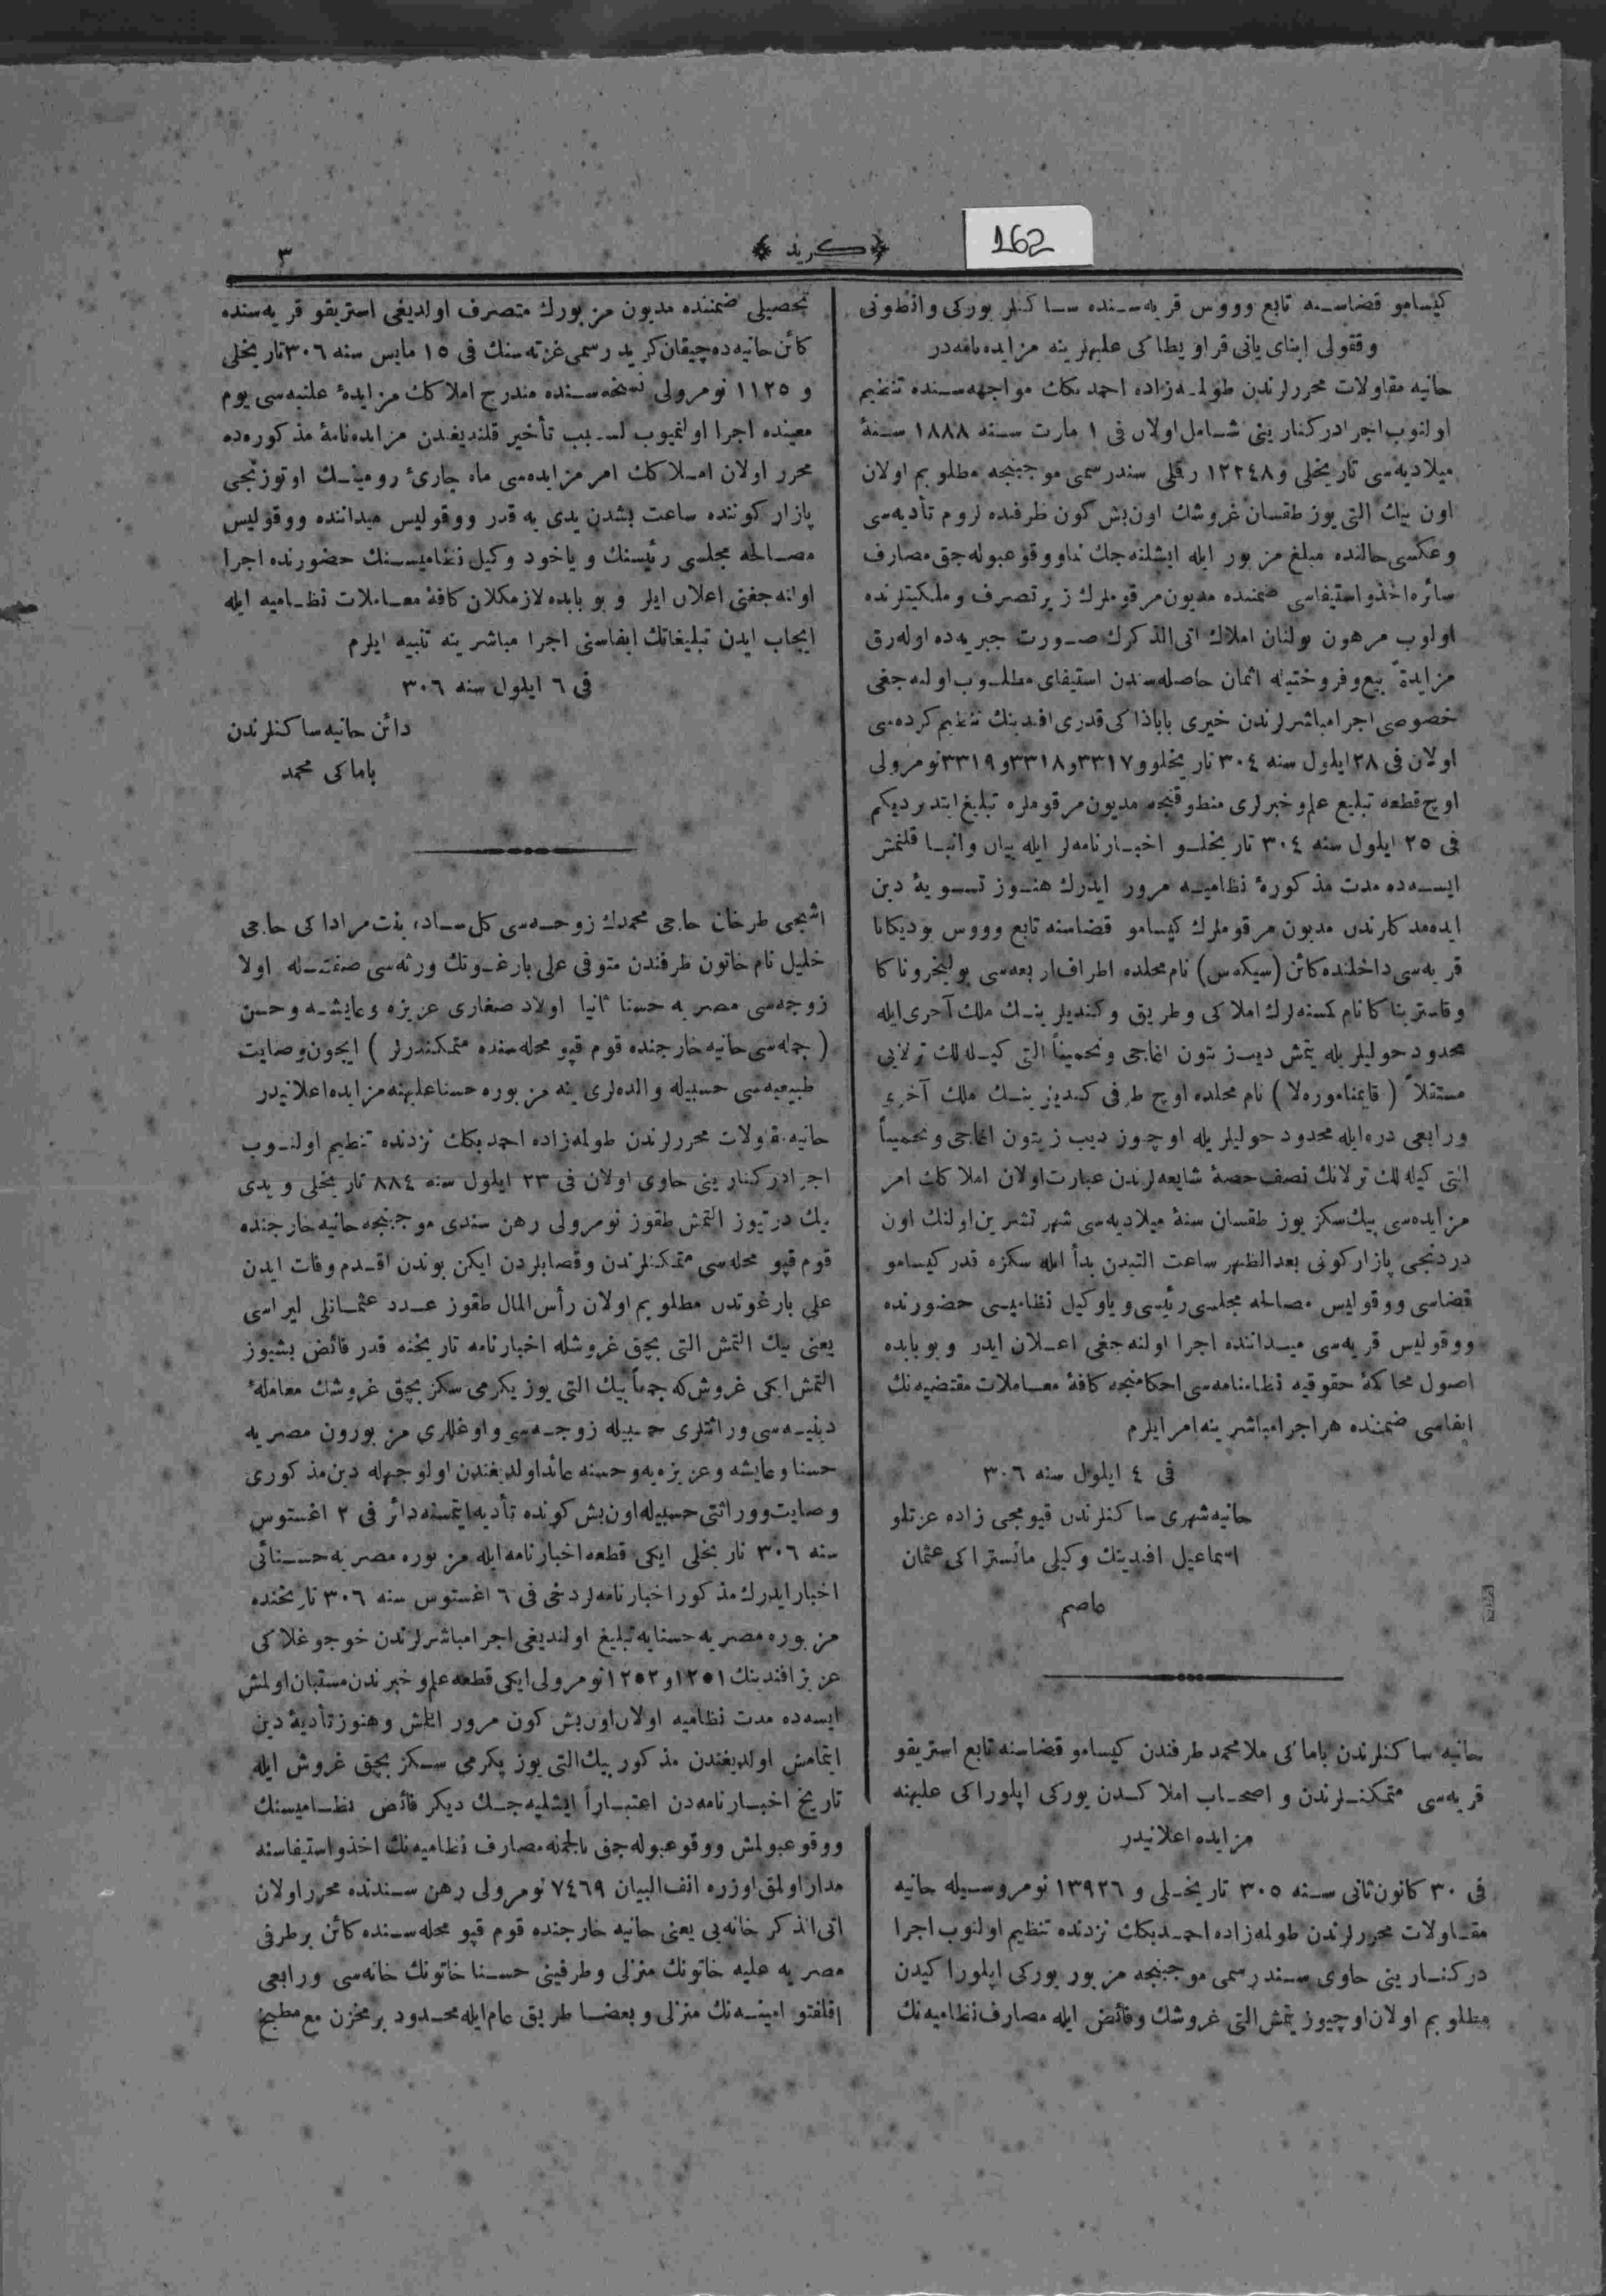 162
﴿ كريد ﴾
٣
كيسامو قضاسنه تابع وووس قريه‌سنده ساكنلر يوركى وانطونى
وققولى ابناى يانى قراويطاكى عليهلرينه مزايده‌نامه‌در
حانيه مقاولات محررلرندن طولمه‌زاده احمد بكك مواجهه‌سنده تنظيم
اولنوب اجرا دركنارينى شامل اولان فى ١ مارت سنه ١٨٨٨ سنۀ
ميلاديه‌سى تاريخلى و١٢٢٤٨ رقملى سند رسمى موجبنجه مطلوبم اولان
اون بيك التى يوز طقسان غروشك اون‌بش كون ظرفنده لزوم تأديه‌سى
وعكسى حالنده مبلغ مزبور ايله ايشلنه‌جك نما ووقوعبوله‌جق مصارف
سائره اخذ واستيفاسى ضمننده مديون مرقوملرك زير تصرف وملكيتلرنده
اولوب مرهون بولنان املاك اتى الذكرك صورت جبريه‌ده اوله‌رق
مزايدةً بيع وفروختيله اثمان حاصله‌سندن استيفاى مطلوب اولنه‌جغى
خصوصى اجرا مباشرلرندن خيرى باباداكى قدرى افندينك تنظيم كرده‌سى
اولان فى ٢٨ ايلول سنه ٣٠٤ تاريخلو و٣٣١٧و٣٣١٨و٣٣١٩ نومرولى
اوچ قطعه تبليغ علم وخبرلرى منطوقنجه مديون مرقوملره تبليغ ايتديرديكم
فى ٢٥ ايلول سنه ٣٠٤ تاريخلو اخبارنامه‌لر ايله بيان وانبا قلنمش
ايسه‌ده مدت مذكورۀ نظاميه مرور ايدرك هنوز تسويۀ دين
ايده‌مدكلرندن مديون مرقوملرك كيسامو قضاسنه تابع وووس بوديكانا
قريه‌سى داخلنده كائن (سيكه‌س) نام محلده اطراف اربعه‌سى بوليخروناكا
وقاستريناكا نام كمسنه‌لرك املاكى وطريق وكنديلرينك ملك آخرى ايله
محدود حوليلريله يتمش ديب زيتون اغاجى وتخميناً التى كيله‌لك ترلايى
مستقلاً ( قايمناموره‌لا ) نام محلده اوچ طرفى كنديزينك ملك آخرى
ورابعى دره ايله محدود حوليلريله اوچوز ديب زيتون اغاجى وتخميناً
التى كيله‌لك ترلانك نصف حصۀ شايعه‌لرندن عبارت اولان املاكك امر
مزايده‌سى بيك سكز يوز طقسان سنۀ ميلاديه‌سى شهر تشرين اولنك اون
دردنجى پازار كونى بعدالظهر ساعت التيدن بدأ ايله سكزه قدر كيسامو
قضاسى ووقوليس مصالحه مجلسى رئيسى وياوكيل نظاميسى حضورنده
ووقوليس قريه‌سى ميداننده اجرا اولنه‌جغى اعلان ايدر وبو بابده
اصول محاكمۀ حقوقيه نظامنامه‌سى احكامنجه كافۀ معاملات مقتضيه‌نك
ايفاسى ضمننده هر اجرا مباشرينه امر ايلرم
فى ٤ ايلول سنه ٣٠٦
حانيه شهرى ساكنلرندن قيومجى زاده عزتلو
اسماعيل افندينك وكيلى مانستراكى عثمان
عاصم
حانيه ساكنلرندن باماكى ملا محمد طرفندن كيسامو قضاسنه تابع استريقو
قريه‌سى متمكنلرندن و اصحاب املاكدن يوركى اپلوراكى عليهنه
مزايده اعلانيدر
فى ٣٠ كانون ثانى سنه ٣٠٥ تاريخلى و ١٣٩٢٦ نومروسيله حانيه
مقاولات محررلرندن طولمه‌زاده احمد بكك نزدنده تنظيم اولنوب اجرا
دركنارينى حاوى سند رسمى موجبنجه مزبور يوركى اپلوراكيدن
مطلوبم اولان اوچيوز يتمش التى غروشك وفائض ايله مصارف نظاميه‌نك
تحصيلى ضمننده مديون مزبورك متصرف اولديغى استريقو قريه‌سنده
كائن حانيه‌ده چيقان كريد رسمى غزته‌سنك فى ١٥ مايس سنه ٣٠٦ تاريخلى
و ١١٢٥ نومرولى نسخه‌سنده مندرج املاكك مزايدۀ علنيه‌سى يوم
معينده اجرا اولنميوب لسبب تأخير قلنديغندن مزايده‌نامۀ مذكوره‌ده
محرر اولان املاكك امر مزايده‌سى ماه جارئ روميك اوتوزنجى
پازار كوننده ساعت بشدن يدى يه قدر ووقوليس ميداننده ووقوليس
مصالحه مجلسى رئيسنك وياخود وكيل نظاميسنك حضورنده اجرا
اولنه‌جغنى اعلان ايلر وبو بابده لازمكلان كافۀ معاملات نظاميه ايله
ايجاب ايدن تبليغاتك ايفاسنى اجرا مباشرينه تنبيه ايلرم
فى ٦ ايلول سنه ٣٠٦
دائن حانيه ساكنلرندن
باماكى محمد
اشجى طرخان حاجى محمدك زوجه‌سى كل‌ساده بنت مراداكى حاجى
خليل نام خاتون طرفندن متوفى على بارغونك ورثه‌سى صفتيله اولا
زوجه‌سى مصريه حسنا ثانيا اولاد صغارى عزيزه وعايشه وحسن
( جمله‌سى حانيه خارجنده قوم قپو محله‌سنده متمكندرلر ) ايچون وصايت
طبيعيه‌سى حسبيله والده‌لرى ينه مزبوره حسنا عليهنه مزايده اعلانيدر
حانيه مقاولات محررلرندن طولمه‌زاده احمد بكك نزدنده تنظيم اولنوب
اجرا دركنارينى حاوى اولان فى ٢٣ ايلول سنه ٨٨٤ تاريخلى و يدى
بيك درتيوز التمش طقوز نومرولى رهن سندى موجبنجه حانيه خارجنده
قوم قپو محله‌سى متمكنلرندن وقصابلردن ايكن بوندن اقدم وفات ايدن
على بارغوندن مطلوبم اولان رأس المال طقوز عدد عثمانلى ليراسى
يعنى بيك التمش التى بچق غروشله اخبارنامه تاريخنه قدر فائض بشيوز
التمش ايكى غروش كه جمعاً بيك التى يوز يكرمى سكز بچق غروشك معاملۀ
دينيه‌سى وراثتلرى حسبيله زوجه‌سى واوغللرى مزبورون مصريه
حسنا وعايشه وعزيزه‌يه وحسنه عائد اولديغندن اولوجهله دين مذكورى
وصايت ووراثتى حسبيله اون‌بش كونده تأديه ايتمسنه دائر فى ٢ اغستوس
سنه ٣٠٦ تاريخلى ايكى قطعه اخبارنامه ايله مزبوره مصريه حسنائى
اخبار ايدرك مذكور اخبارنامه‌لر دخى فى ٦ اغستوس سنه ٣٠٦ تاريخنده
مزبوره مصريه حسنايه تبليغ اولنديغى اجرا مباشرلرندن خوجوغلاكى
عزيز افندينك ١٢٥١و١٢٥٢ نومرولى ايكى قطعه علم وخبرندن مستبان اولمش
ايسه‌ده مدت نظاميه اولان اون‌بش كون مرور ايلمش وهنوز تأديۀ دين
ايتمامش اولديغندن مذكور بيك التى يوز يكرمى سكز بچق غروش ايله
تاريخ اخبارنامه‌دن اعتباراً ايشليه‌جك ديكر فائض نظاميسنك
ووقوعبولمش ووقوعبوله‌جق بالجمله مصارف نظاميه‌نك اخذ واستيفاسنه
مدار اولمق اوزره انف البيان ٧٤٦٩ نومرولى رهن سندنده محرر اولان
اتى الذكر خانه‌يى يعنى حانيه خارجنده قوم قپو محله‌سنده كائن برطرفى
مصريه عليه خاتونك منزلى وطرفينى حسنا خاتونك خانه‌سى ورابعى
اقلفتو امينه‌نك منزلى وبعضا طريق عام ايله محدود بر مخزن مع مطبخ